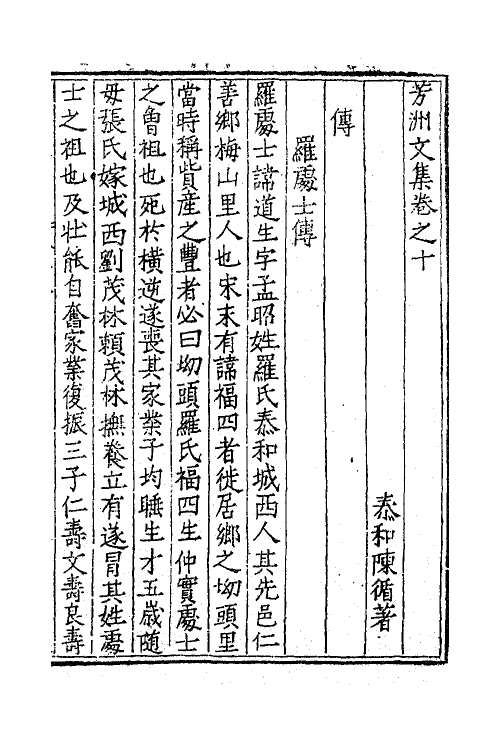 芳洲文集卷之十
泰和陳循著
傳
羅處士傳
羅處士諱道生字孟昭姓羅氏泰和城西人其先邑仁
善鄉梅山里人也宋末有諱福四者徙居鄉之坳頭里
當時稱貲産之豐者必曰坳頭羅氏福四生仲實處士
之曾祖也死於橫逆遂喪其家業子均睡生才五歲随
母張氏嫁城西劉茂林頼茂林撫養立有遂冐其姓處
士之祖也及壯能自奮家業復振三子仁壽文壽良壽